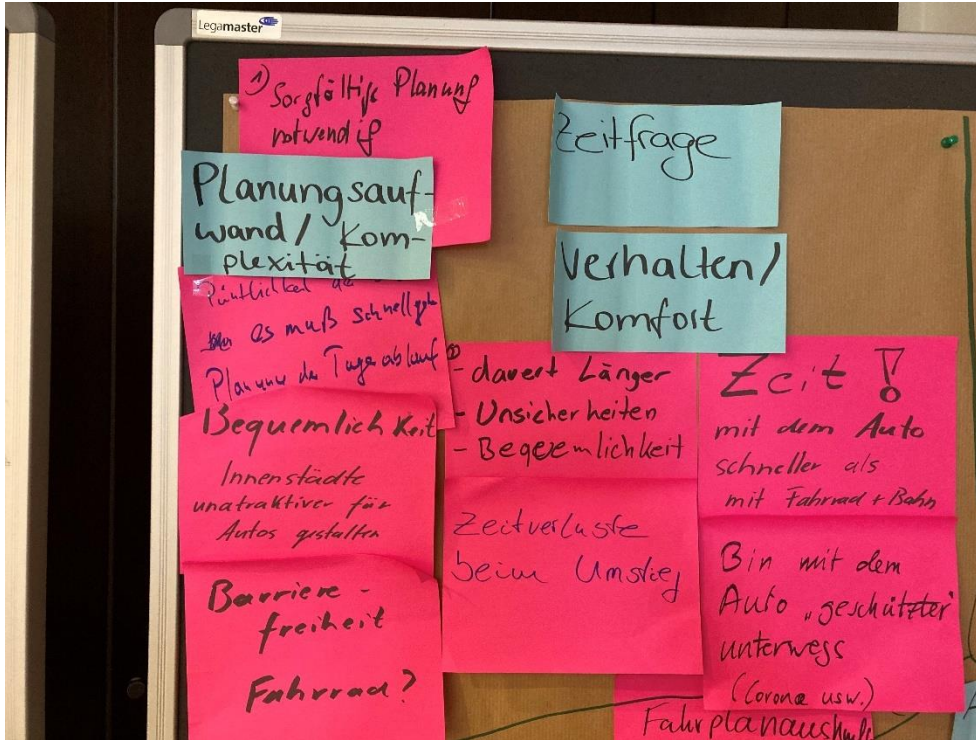 Legamaster
1) Sorgfältige Planung
notwendig
Planungsauf-
wand / Kom-
plexität
es muß schnell
Planung der Tagesablauf
Bequemlichkeit
Innenstädte
unatraktiver für
Autos gestalten
Barriere-
freiheit
Fahrrad?
Zeitfrage
Verhalten/
Komfort
- dauert Länger
- Unsicherheiten
- Beqeemlichkeit
Zeitverluste
beim Umstieg
Zeit!
mit dem Auto
schneller als
mit Fahrrad + Bahn
Bin mit dem
Auto „geschützter"
unterwegs
(Corona usw.)